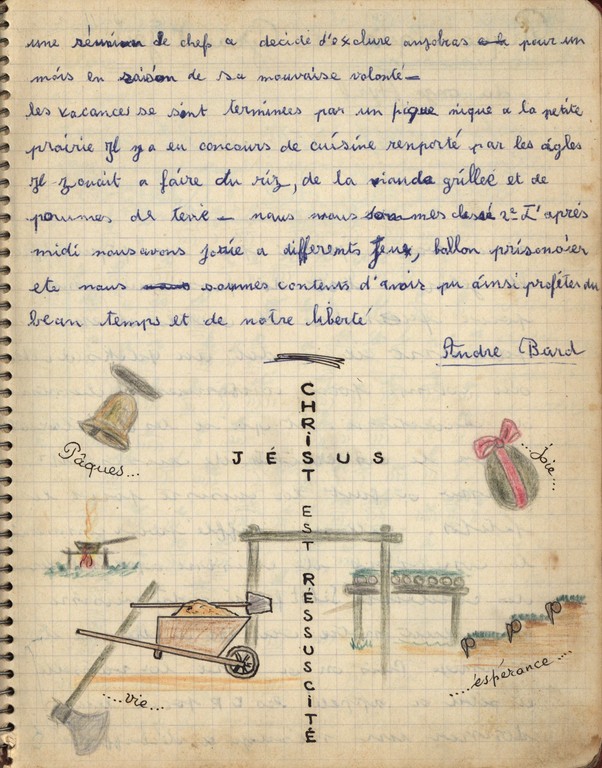 une réunion de chefs a décidé d'exclure anjobras pour un
mois en raison de sa mauvaise volonté—
les vacances se sont terminées par un pique nique a la petite
prairie Il y a eu concours de cuisine renporté par les aigles
Il y avait a faire du riz, de la viande grilleé et de
pommes de terre — nous nous sommes classé 2e L'après
midi nous avons joué a differents Jeux, ballon prisonnier
etc nous sommes contents d'avoir pu ainsi profiter du
beau temps et de notre liberté
Andre Bard
Pâques...
JÉSUS
CHRIST EST RÉSSUSCITÉ
...Joie...
....vie...
....espérance....